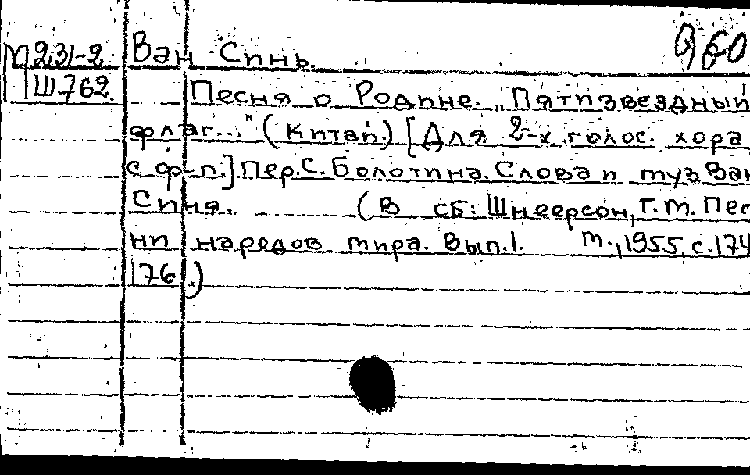 М231-2 Ван Синь. 960
Ш762 Песня о Родине. „Пятизвездный
флаг..." (Китай) [Для 2-х голос. хора
с ф-п.] Пер. С. Болотина. Слова и муз Ван
Синя. (В сб: Шнеерсон, Г.М. Пес
ни народов мира. Вып.1. М., 1955, с.174
176.)